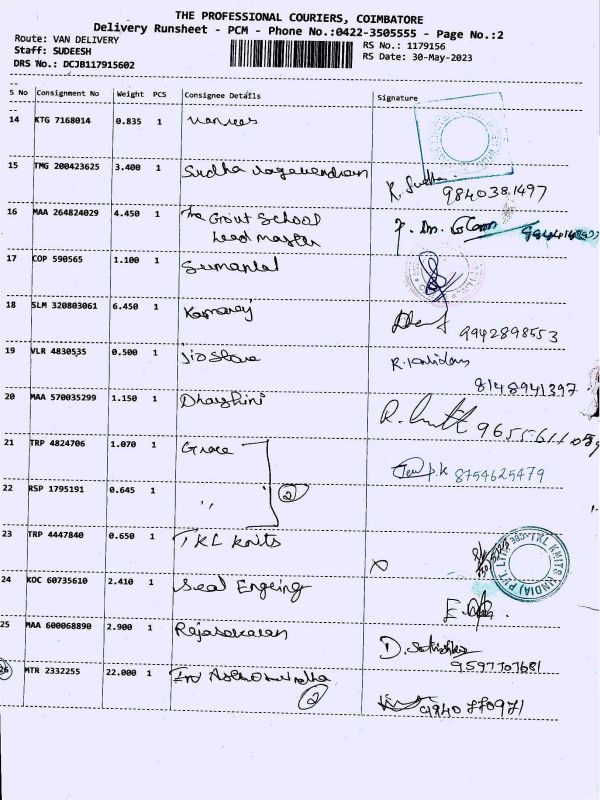 THE PROFESSIONAL COURIERS, COIMBATORE
Delivery Runsheet - PCM - Phone No.:0422-3505555 - Page No.:2
Route: VAN DELIVERY
RS No.: 1179156
Staff: SUDEESH
RS Date: 30-May-2023
DRS No.: DCJB117915602
S No Consignment No Weight PCS Consignee Details Signature
14 KTG 7168014 0.835 1
15 TMG 200423625 3.400 1 Sudha
R. Sudha
9840381497
16 MAA 264824029 4.450 1 The Grout School
Lead master
17 COP 590565 1.100 1 Sumantal
18 SLM 320803061 6.450 1 Kamaraj
9942898553
19 VLR 4830535 0.500 1 Jio Store
8148941397
20 MAA 570035299 1.150 1 Dharshini
21 TRP 4824706 1.070 1 Grace
P.K 8754625479
22 RSP 1795191 0.645 1 " 2
23 TRP 4447840 0.650 1 TKL Knits
X
24 KOC 60735610 2.410 1 Seal Engeing
25 MAA 600068890 2.900 1 Rajasekaran
D. Sathish
9597707681
26 MTR 2332255 22.000 1
2